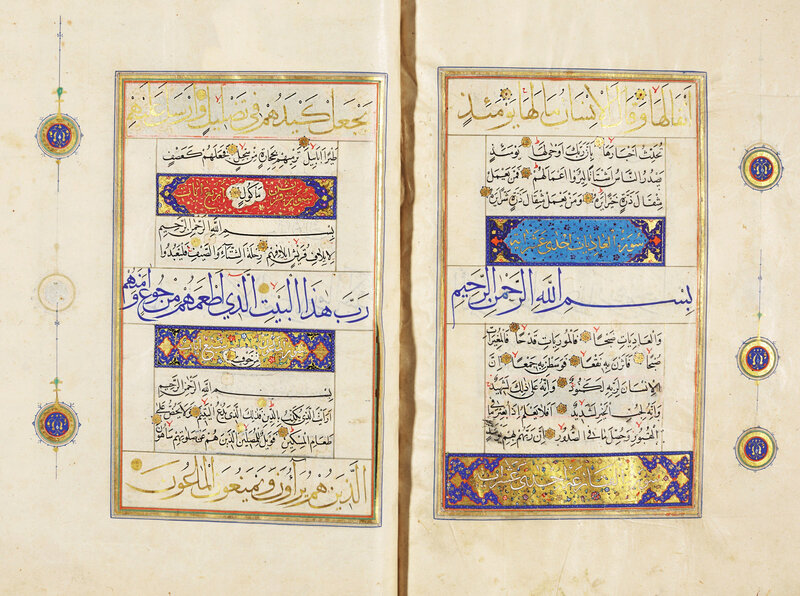 أثقالها وقال الإنسان ما لها يومئذ
تحدث أخبارها بأن ربك أوحى لها يومئذ
يصدر الناس أشتاتا ليروا أعمالهم فمن يعمل
مثقال ذرة خيرا يره ومن يعمل مثقال ذرة شرا يره
سورة العاديات احدى عشر
بسم الله الرحمن الرحيم
والعاديات ضبحا فالموريات قدحا فالمغيرات
صبحا فأثرن به نقعا فوسطن به جمعا إن
الإنسان لربه لكنود وإنه على ذلك لشهيد
وإنه لحب الخير لشديد أفلا يعلم إذا بعثر ما في
القبور وحصل ما في الصدور إن ربهم بهم
احدى عشر
يجعل كيدهم في تضليل وأرسل عليهم
طيرا أبابيل ترميهم بحجارة من سجيل فجعلهم كعصف
سورة قريش مأكول اربع ايات
بسم الله الرحمن الرحيم
لإيلاف قريش إيلافهم رحلة الشتاء والصيف فليعبدوا
رب هذا البيت الذي أطعمهم من جوع وآمنهم
من خوف
بسم الله الرحمن الرحيم
أرأيت الذي يكذب بالدين فذلك الذي يدع اليتيم ولا يحض على
طعام المسكين فويل للمصلين الذين هم عن صلوتهم ساهون
الذين هم يراؤن ويمنعون الماعون